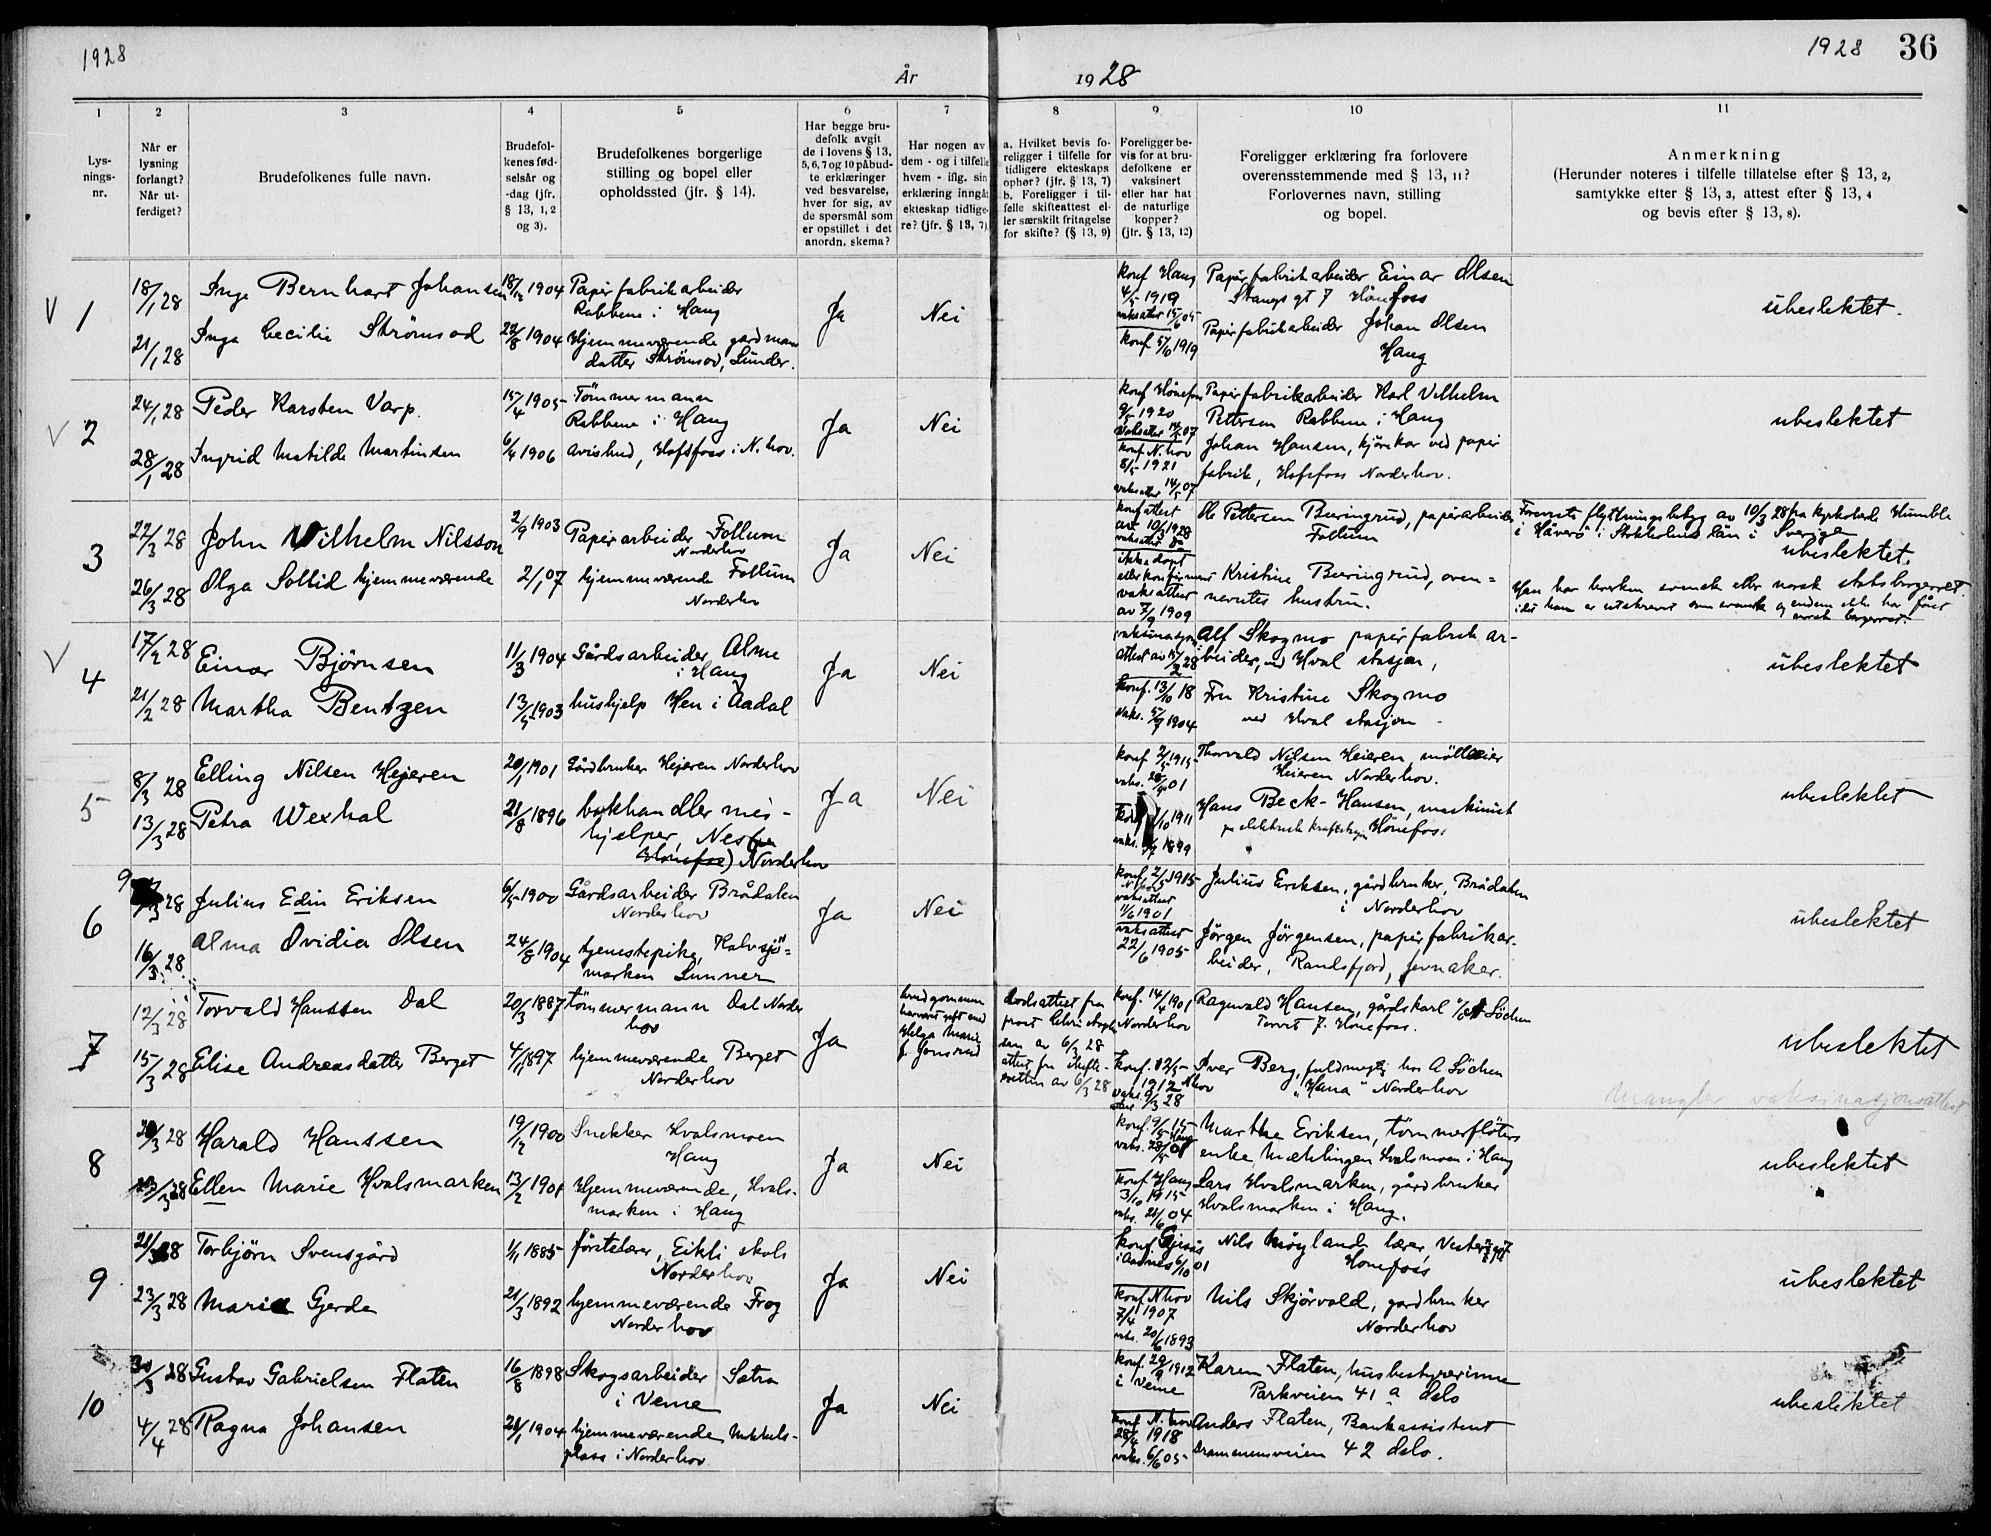 1928
1928 36
År 1928
1 2 3 4 5 6 7 8 9 10 11
Lys-
nings-
nr.
Når er
lysning
forlangt?
Når ut-
ferdiget?
Brudefolkenes fulle navn.
Brudefol-
kenes fød-
selsår og
-dag (jfr.
§ 13, 1, 2
og 3).
Brudefolkenes borgerlige
stilling og bopel eller
opholdssted (jfr. § 14).
Har begge bru-
defolk avgit
de i lovens § 13,
5, 6, 7 og 10 påbud-
te erklæringer
ved besvarelse,
hver for sig, av
de spørsmål som
er opstillet i det
anordn. skema?
Har nogen av
dem - og i tilfelle
hvem - iflg. sin
erklæring inngå
ekteskap tidlige-
re? (jfr. § 13, 7)
a. Hvilket bevis fo-
religger i tilfelle for
tidligere ekteskaps
ophør? (jfr. § 13, 7)
b. Foreligger i til-
felle skifteattest el-
ler særskilt fritagelse
for skifte? (§ 13, 9)
Foreligger be-
vis for at bru-
defolkene er
vaksinert
eller har hat
de naturlige
kopper?
(jfr. § 13, 12)
Foreligger erklæring fra forlovere
overensstemmende med § 13, 11?
Forlovernes navn, stilling
og bopel.
Anmerkning
(Herunder noteres i tilfelle tillatelse efter § 13, 2,
samtykke efter § 13, 3, attest efter § 13, 4
og bevis efter § 13, 8).
V 1
18/1 28
21/1 28
Inge Bernhart Johansen
Inga Cecilie Strømsod
18/12 1904
22/8 1904
Papirfabrikarbeider
Rabbene i Haug
Hjemmeværende gardmann
datter Strømsod, Lunder.
Ja
Nei
konf Haug
4/5 1919
konf 5/10 1919
Papirfabrikarbeider Einar Olsen
Stangs gt 7 Hønefoss
Papirfabrikarbeider Johan Olsen
Haug
ubeslektet.
V 2
24/1 28
28/1 28
Peder Karsten Varp.
Ingrid Matilde Martinsen
15/4 1905
6/4 1906
Tømmermann
Rabbene i Haug
avisbud, Hofsfoss i N. hov.
Ja
Nei
konf Hønefoss
9/5 1920
konf. N. hov
8/5 1921
vaksatter 14/5 07
Papirfabrikarbeider Karl Vilhelm
Pettersen Rabbene i Haug
Johan Hansen, kjørekar ved papir
fabrik, Hofsfoss Norderhov.
ubeslektet
3
22/3 28
26/3 28
John Wilhelm Nilsson
Olga Sollid hjemmeværende
2/9 1903
2/1 07
Papirarbeider Follum
Norderhov
hjemmeværende Follum
Norderhov
Ja
Nei
konfattest
av 10/3 1928
ikke døpt
eller konfirmert
vaksattest
av 7/9 1909
Ole Pettersen Bæringrud, papirarbeider
Follum
Kristine Bæringrud, oven=
nevntes hustru.
Forevist flyttningsbetyg av 10/3 28 fra kyrkoherde Humble
i Häverö i Stockholms län i Sverige
ubeslektet.
Han har hverken svensk eller norsk statsborgerret
idet han er utskrevet som svensk og endnu ikke har fåat
norsk borgerret.
V 4
17/2 28
21/2 28
Einar Bjørnsen
Martha Bentzen
11/3 1904
13/5 1903
Gårdsarbeider Alme
i Haug
hushjelp Hen i Aadal
Ja
Nei
vaksinasjons
attest av 15/2 28
konf. 13/10 18
vaks. 5/9 1904
Alf Skogmo papirfabrik ar-
beider, ved Hval stasjon,
Fru Kristine Skogmo
ved Hval stasjon
ubeslektet
5
8/3 28
13/3 28
Elling Nilsen Hejeren
Petra Wexhal
20/1 1901
21/8 1896
Gårdbruker Hejeren Norderhov
bokhandler med-
hjelper, Nes
Hønefoss) Norderhov
Ja
Nei
konf 2/5 1915
/10 1911
1899
Thorvald Nilsen Heieren, mølleeier
Heieren Norderhov.
Hans Beck-Hansen, maskinist
Hønefoss
ubeslektet
6
9/3 28
16/3 28.
Julius Edin Eriksen
Alma Ovidia Olsen
6/5 1900
24/8 1904
Gårdsarbeider Brådalen
Norderhov
tjenestepike, Kalvsjø=
marken Lunner
Ja
Nei
konf 2/5 1915
N hov
vaksattest
11/6 1901
vaksattest
22/6 1905
Julius Eriksen, gårdbruker, Brådalen
i Norderhov
Jørgen Jørgensen, papirfabrikar-
beider, Randsfjord, Jevnaker.
ubeslektet
7
12/3 28
15/3 28
Torvald Hanssen Dal
Elise Andreasdatter Berget
20/3 1887
4/11 1897
tømmermann Dal Norder
hov
hjemmeværende Berget
Norderhov
Ja
brudgommen
har vært gift med
Helga Marie
f. Jonsrud
dødsattest fra
prost Christophe
sen av 6/3 28
attest fra skifte-
retten av 6/3 28
konf. 14/4 1901
Norderhov
konf. 12/5
1912 Nhov
vaks. 9/3 28
Ragnvald Hansen, gårdskarl c/o A Søchen
Torvet 7. Hønefoss.
Iver Berg, fuldmegtig hos A Søchen
„Hana" Norderhov
ubeslektet
Mangler vaksinasjonsattest
8
/3 28
23/3 28
Harald Hanssen
Ellen Marie Hvalsmarken
19/12 1900
13/2 1901
Snekker Hvalsmoen
Haug
Hjemmeværende, Hvals-
marken i Haug
Ja
Nei
konf 9/5 15
Haug
konf. Haug
3/10 1915
vaks. 21/6 04
Marthe Eriksen, tømmerfløters
enke, Mæhlingen Hvalsmoen i Haug
Lars Hvalsmarken, gårdbruker
Hvalsmarken i Haug.
ubeslektet
9
21/3 28
23/3 28
Torbjørn Svensgård
Marie Gjerde
1/1 1885
21/3 1892
førstelærer, Eikli skole
Norderhov
hjemmeværende Frog
Norderhov
Ja
Nei
konf.
6/10 01
konf Nhov
7/4 1907
vaks. 20/6 1893
Nils Møyland lærer, Vestern gt 7
Hønefoss
Nils Skjørvold, gardbruker
Norderhov
ubeslektet
10
30/3 28
4/4 28
Gustav Gabrielsen Flaten
Ragna Johansen
16/8 1898
21/1 1904
Skogsarbeider Sætra
i Veme
hjemmeværende Mikkels-
plass i Norderhov
Ja
Nei
konf. 29/9 1912
i Veme
konf N. hov
28/4 1918
vaks. 6/6 05
Karen Flaten, husbestyrerinne
Parkveien 41 a Oslo
Anders Flaten, Bankassistent
Drammensveien 42 Oslo.
ubeslektet